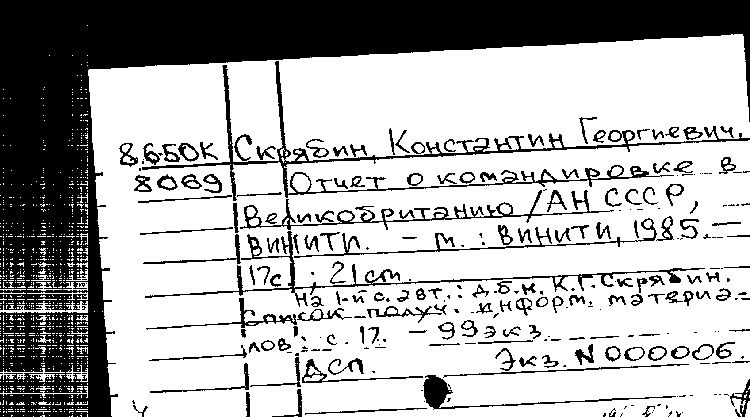 8.650К Скрябин, Константин Георгиевич.
8069 Отчет о командировке в
Великобританию /АН СССР,
ВИНИТИ. – М. : ВИНИТИ, 1985. –
17с. ; 21 cm.
На 1-й с. авт.: д.б.н. К.Г. Скрябин.
Список получ. информ. материа-
лов : с. 17. – 99 экз.
ДСП. Экз. N 000006.